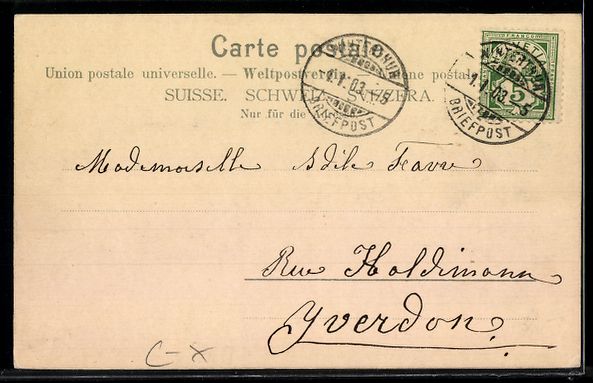 Carte postale
Union postale universelle. — Weltpostverein. postale
SUISSE. SCHWEIZ. SVIZZERA.
Nur für die
WINTERTHUR
1.I.03.
BRIEFPOST
FRANCO
WINTERTHUR
1.I.03.
BRIEFPOST
Mademoiselle Adile Favre
Rue Haldimann
Yverdon.
C-X